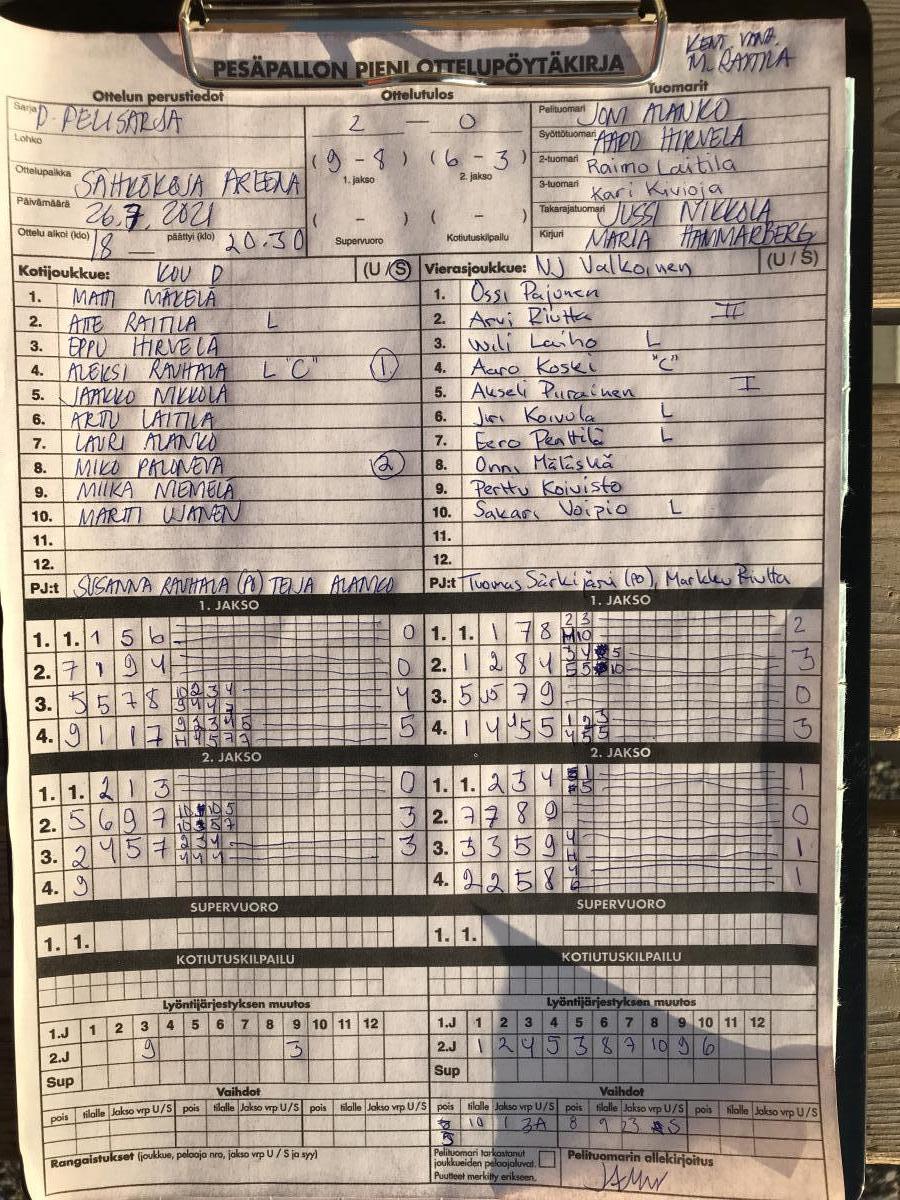 KENT. VMA.
M. RAITILA
PESÄPALLON PIENI OTTELUPÖYTÄKIRJA
Ottelun perustiedot
Sarja D-PELISARJA
Lohko
Ottelupaikka SÄHKÖKOJA AREENA
Päivämäärä 26.7.2021
Ottelu alkoi (klo) 18 päättyi (klo) 20.30
Ottelutulos
2 — 0
(9 - 8) (6 - 3)
1. jakso 2. jakso
( - ) ( - )
Supervuoro Kotiutuskilpailu
Tuomarit
Pelituomari JONI ALANKO
Syöttötuomari AAPO HIRVELÄ
2-tuomari Raimo Laitila
3-tuomari Kari Kivioja
Takarajatuomari JUSSI NIKKOLA
Kirjuri MARIA HAMMARBERG
Kotijoukkue: KOU D (U / S)
1. MATTI MÄKELÄ
2. ATTE RAITILA L
3. EPPU HIRVELÄ
4. ALEKSI RAUHALA L "C" 1
5. JAAKKO NIKKOLA
6. ARTTU LAITILA
7. LAURI ALANKO
8. MIKO PALONEVA 2
9. MIIKA NIEMELÄ
10. MARTTI
11.
12.
PJ:t SUSANNA RAUHALA (PO) TEIJA ALANKO
Vierasjoukkue: NJ Valkoinen (U / S)
1. Ossi Pajunen
2. Arvi Riutta II
3. Wili Laiho L
4. Aaro Koski "C"
5. Akseli Piirainen I
6. Jiri Koivula L
7. Eero Penttilä L
8. Onni Mäläskä
9. Perttu Koivisto
10. Sakari Voipio L
11.
12.
PJ:t Tuomas Särkijärvi (PO), Markku Riutta
1. JAKSO
1. 1. 1 5 6 0
2. 7 1 9 4 0
3. 5 5 7 8 10 2 3 4 4
9 4 4 7
4. 9 1 1 7 9 2 3 4 5 5
H 4 5 7 7
1. JAKSO
1. 1. 1 7 8 2 3 2
H 10
2. 1 2 8 4 3 4 5 3
5 5 10
3. 5 5 7 9 0
4. 1 4 5 5 1 2 3 3
4 5 5
2. JAKSO
1. 1. 2 1 3 0
2. 5 6 9 7 10 10 5 3
10 5 7
3. 2 4 5 7 2 3 4 3
4 4 4
4. 9
2. JAKSO
1. 1. 2 3 4 1 1
5
2. 7 7 8 9 0
3. 3 3 5 9 4 1
H
4. 2 2 5 8 4 1
6
SUPERVUORO
1. 1.
SUPERVUORO
1. 1.
KOTIUTUSKILPAILU
KOTIUTUSKILPAILU
Lyöntijärjestyksen muutos
1.J 1 2 3 4 5 6 7 8 9 10 11 12
2.J 9 3
Sup
Lyöntijärjestyksen muutos
1.J 1 2 3 4 5 6 7 8 9 10 11 12
2.J 1 2 4 5 3 8 7 10 9 6
Sup
Vaihdot
pois tilalle Jakso vrp U/S pois tilalle Jakso vrp U/S pois tilalle Jakso vrp U/S
Vaihdot
pois tilalle Jakso vrp U/S pois tilalle Jakso vrp U/S pois tilalle Jakso vrp U/S
5 10 1 3A 8 9 23 S
Rangaistukset (joukkue, pelaaja nro, jakso vrp U / S ja syy)
Pelituomari tarkastanut
joukkueiden pelaajaluvat.
Puutteet merkitty erikseen.
Pelituomarin allekirjoitus